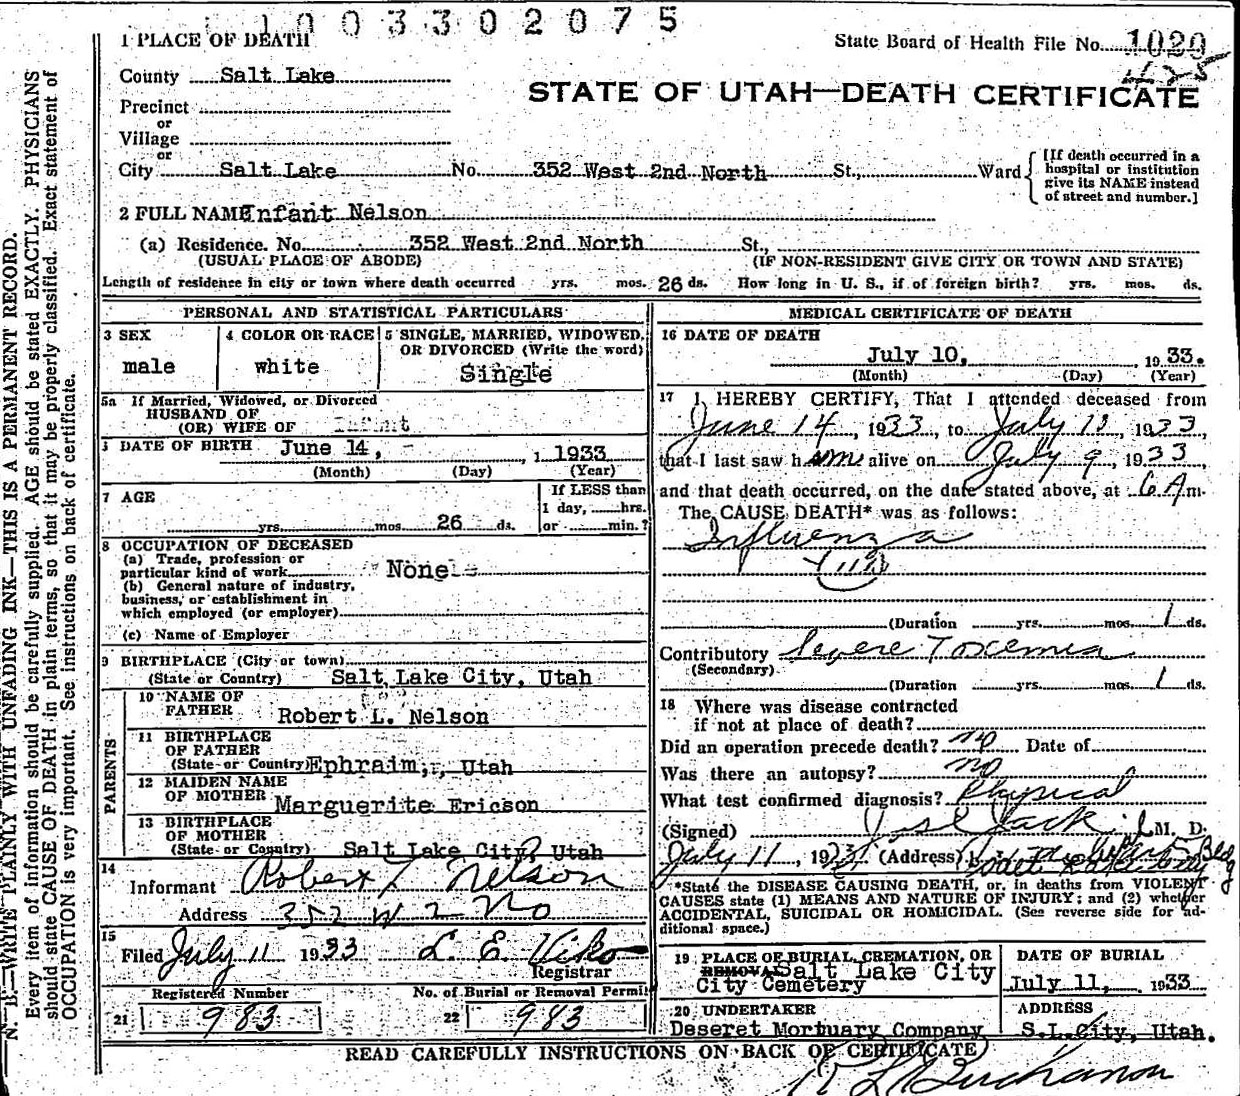 1003302075
1 PLACE OF DEATH
State Board of Health File No. 1020
County Salt Lake
STATE OF UTAH—DEATH CERTIFICATE
Precinct
or
Village
or
City Salt Lake No. 352 West 2nd North St., Ward
[If death occurred in a
hospital or institution
give its NAME instead
of street and number.]
2 FULL NAME Infant Nelson
(a) Residence. No. 352 West 2nd North St.,
(USUAL PLACE OF ABODE) (IF NON-RESIDENT GIVE CITY OR TOWN AND STATE)
Length of residence in city or town where death occurred yrs. mos. 26 ds. How long in U. S., if of foreign birth? yrs. mos. ds.
PERSONAL AND STATISTICAL PARTICULARS
3 SEX
male
4 COLOR OR RACE
white
5 SINGLE, MARRIED, WIDOWED,
OR DIVORCED (Write the word)
Single
5a If Married, Widowed, or Divorced
HUSBAND OF
(OR) WIFE OF Infant
DATE OF BIRTH June 14, 1933
(Month) (Day) (Year)
7 AGE
yrs. mos. 26 ds.
If LESS than
1 day, hrs.
or min.?
8 OCCUPATION OF DECEASED
(a) Trade, profession or
particular kind of work None
(b) General nature of industry,
business, or establishment in
which employed (or employer)
(c) Name of Employer
9 BIRTHPLACE (City or town)
(State or Country) Salt Lake City, Utah
PARENTS
10 NAME OF
FATHER Robert L. Nelson
11 BIRTHPLACE
OF FATHER
(State or Country) Ephraim, Utah
12 MAIDEN NAME
OF MOTHER Marguerite Ericson
13 BIRTHPLACE
OF MOTHER
(State or Country) Salt Lake City, Utah
14
Informant Robert L Nelson
Address 352 W 2 No
15
Filed July 11 1933 L. E. Viko
Registrar
Registered Number
21 983
No. of Burial or Removal Permit
22 983
MEDICAL CERTIFICATE OF DEATH
16 DATE OF DEATH
July 10, 1933.
(Month) (Day) (Year)
17 I HEREBY CERTIFY, That I attended deceased from
June 14, 1933, to July 10, 1933,
that I last saw him alive on July 9, 1933,
and that death occurred, on the date stated above, at 6 A.m.
The CAUSE DEATH* was as follows:
Influenza
(Duration yrs. mos. 1 ds.
Contributory Severe Toxemia
(Secondary)
(Duration yrs. mos. 1 ds.
18 Where was disease contracted
if not at place of death?
Did an operation precede death? no Date of
Was there an autopsy? no
What test confirmed diagnosis? Physical
(Signed) Jack M. D.
July 11, 1933 (Address) Bldg
*State the DISEASE CAUSING DEATH, or, in deaths from VIOLENT
CAUSES state (1) MEANS AND NATURE OF INJURY; and (2) whether
ACCIDENTAL, SUICIDAL OR HOMICIDAL. (See reverse side for ad-
ditional space.)
19 PLACE OF BURIAL, CREMATION, OR
REMOVAL Salt Lake City
City Cemetery
DATE OF BURIAL
July 11, 1933
20 UNDERTAKER
Deseret Mortuary Company
ADDRESS
S.L.City, Utah.
READ CAREFULLY INSTRUCTIONS ON BACK OF CERTIFICATE
Buchanan
N. B.—WRITE PLAINLY WITH UNFADING INK—THIS IS A PERMANENT RECORD.
Every item of information should be carefully supplied. AGE should be stated EXACTLY. PHYSICIANS
should state CAUSE OF DEATH in plain terms, so that it may be properly classified. Exact statement of
OCCUPATION is very important. See instructions on back of certificate.